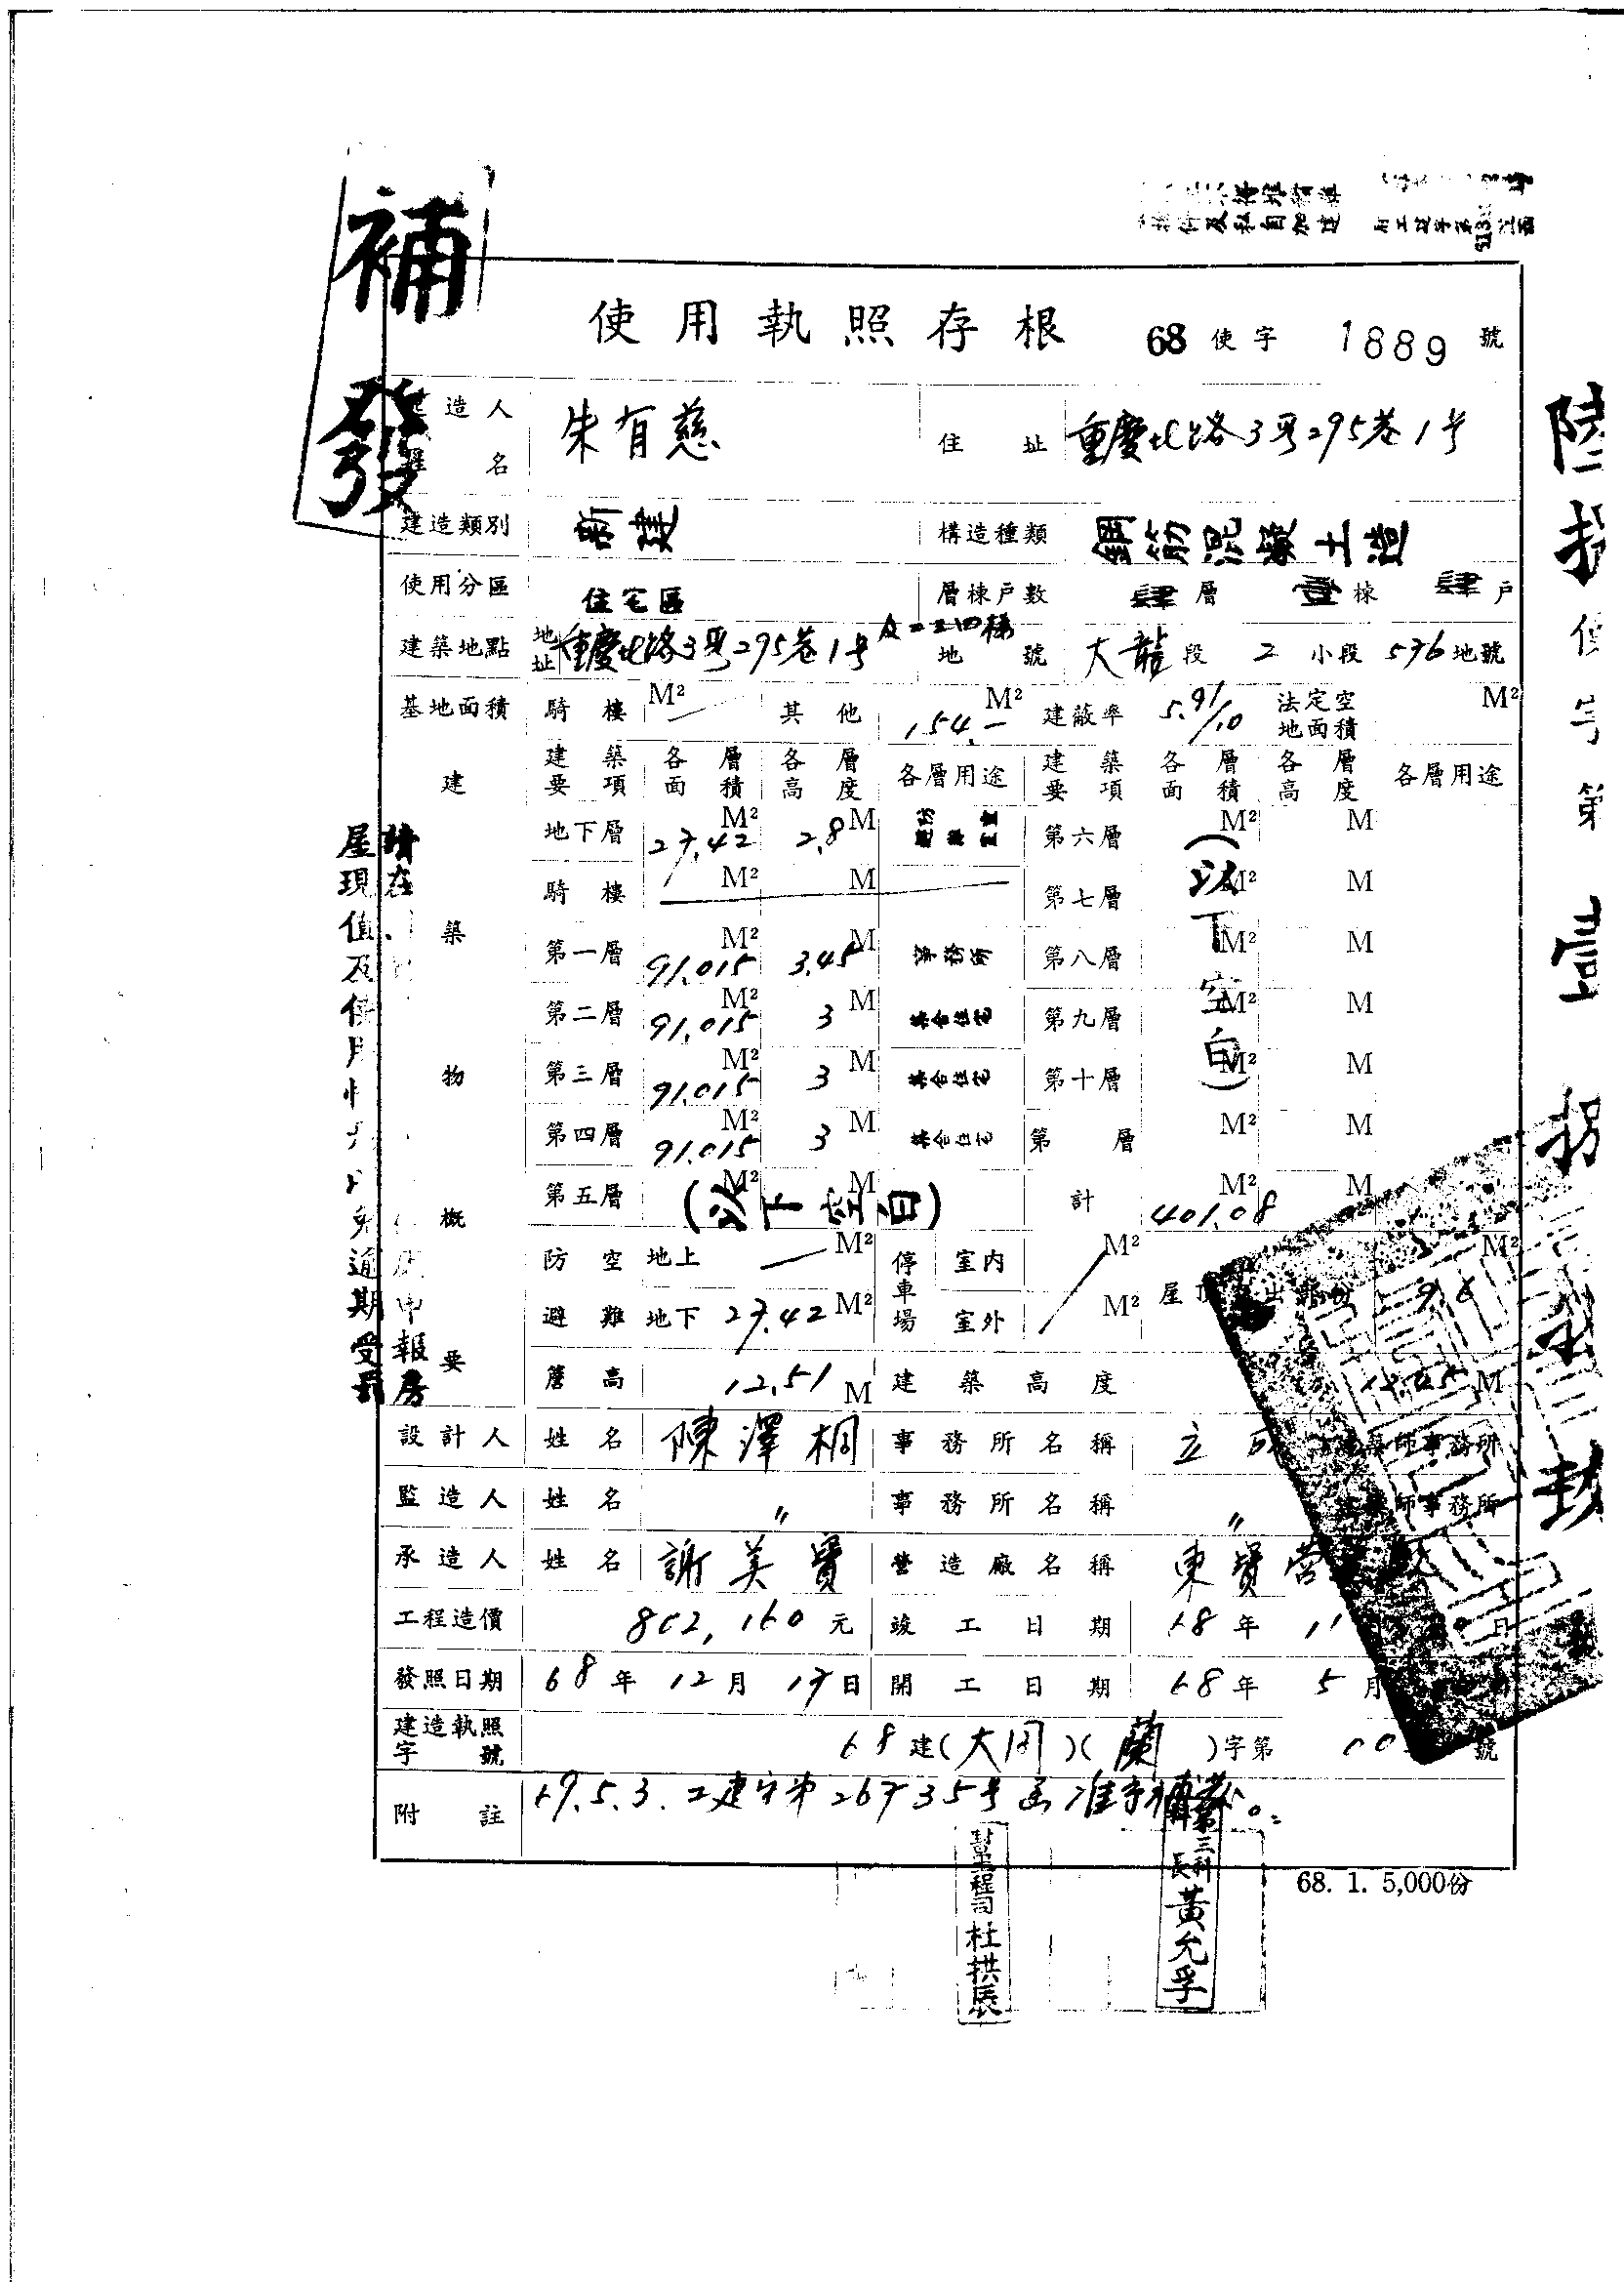 補發
使用執照存根 68 使字 1889 號
造人 名 朱有慈 住址 重慶北路3段295巷1号
建造類別 新建 構造種類 鋼筋混凝土造
使用分區 住宅區 層棟戶數 肆層 壹棟 肆戶
建築地點 地址 重慶北路3段295巷1号 及二三四樓 地號 大龍段 2 小段 576 地號
基地面積 騎樓 M² 其他 154.- M² 建蔽率 5.91/10 法定空地面積 M²
建築物概要
建築要項 各層面積 各層高度 各層用途 建築要項 各層面積 各層高度 各層用途
地下層 27.42 M² 2.8 M 第六層 M² M
騎樓 M² M 第七層 M² M
第一層 91.015 M² 3.45 M 事務所 第八層 M² M
第二層 91.015 M² 3 M 集合住宅 第九層 M² M
第三層 91.015 M² 3 M 集合住宅 第十層 M² M
第四層 91.015 M² 3 M 集合住宅 第 層 M² M
(以下空白)
第五層 M² M (以下空白) 計 401.08 M² M
防空避難 地上 M² 停車場 室內 M² 屋 M²
地下 27.42 M² 室外 M²
簷高 12.51 M 建築高度 M
設計人 姓名 陳澤桐 事務所名稱 立 師事務所
監造人 姓名 〃 事務所名稱 〃 師事務所
承造人 姓名 謝美賢 營造廠名稱 東賢營
工程造價 802,160 元 竣工日期 68 年 11 日
發照日期 68 年 12 月 17 日 開工日期 68 年 5 月
建造執照字號 68 建(大同)(蘭)字第 號
附註 69.5.3.工建字第26735号函准予補發。
68. 1. 5,000份
杜拱辰
第三科長 黃允孚
屋現值及使
逾期受罰
請在
申報房
陸拾使字第壹